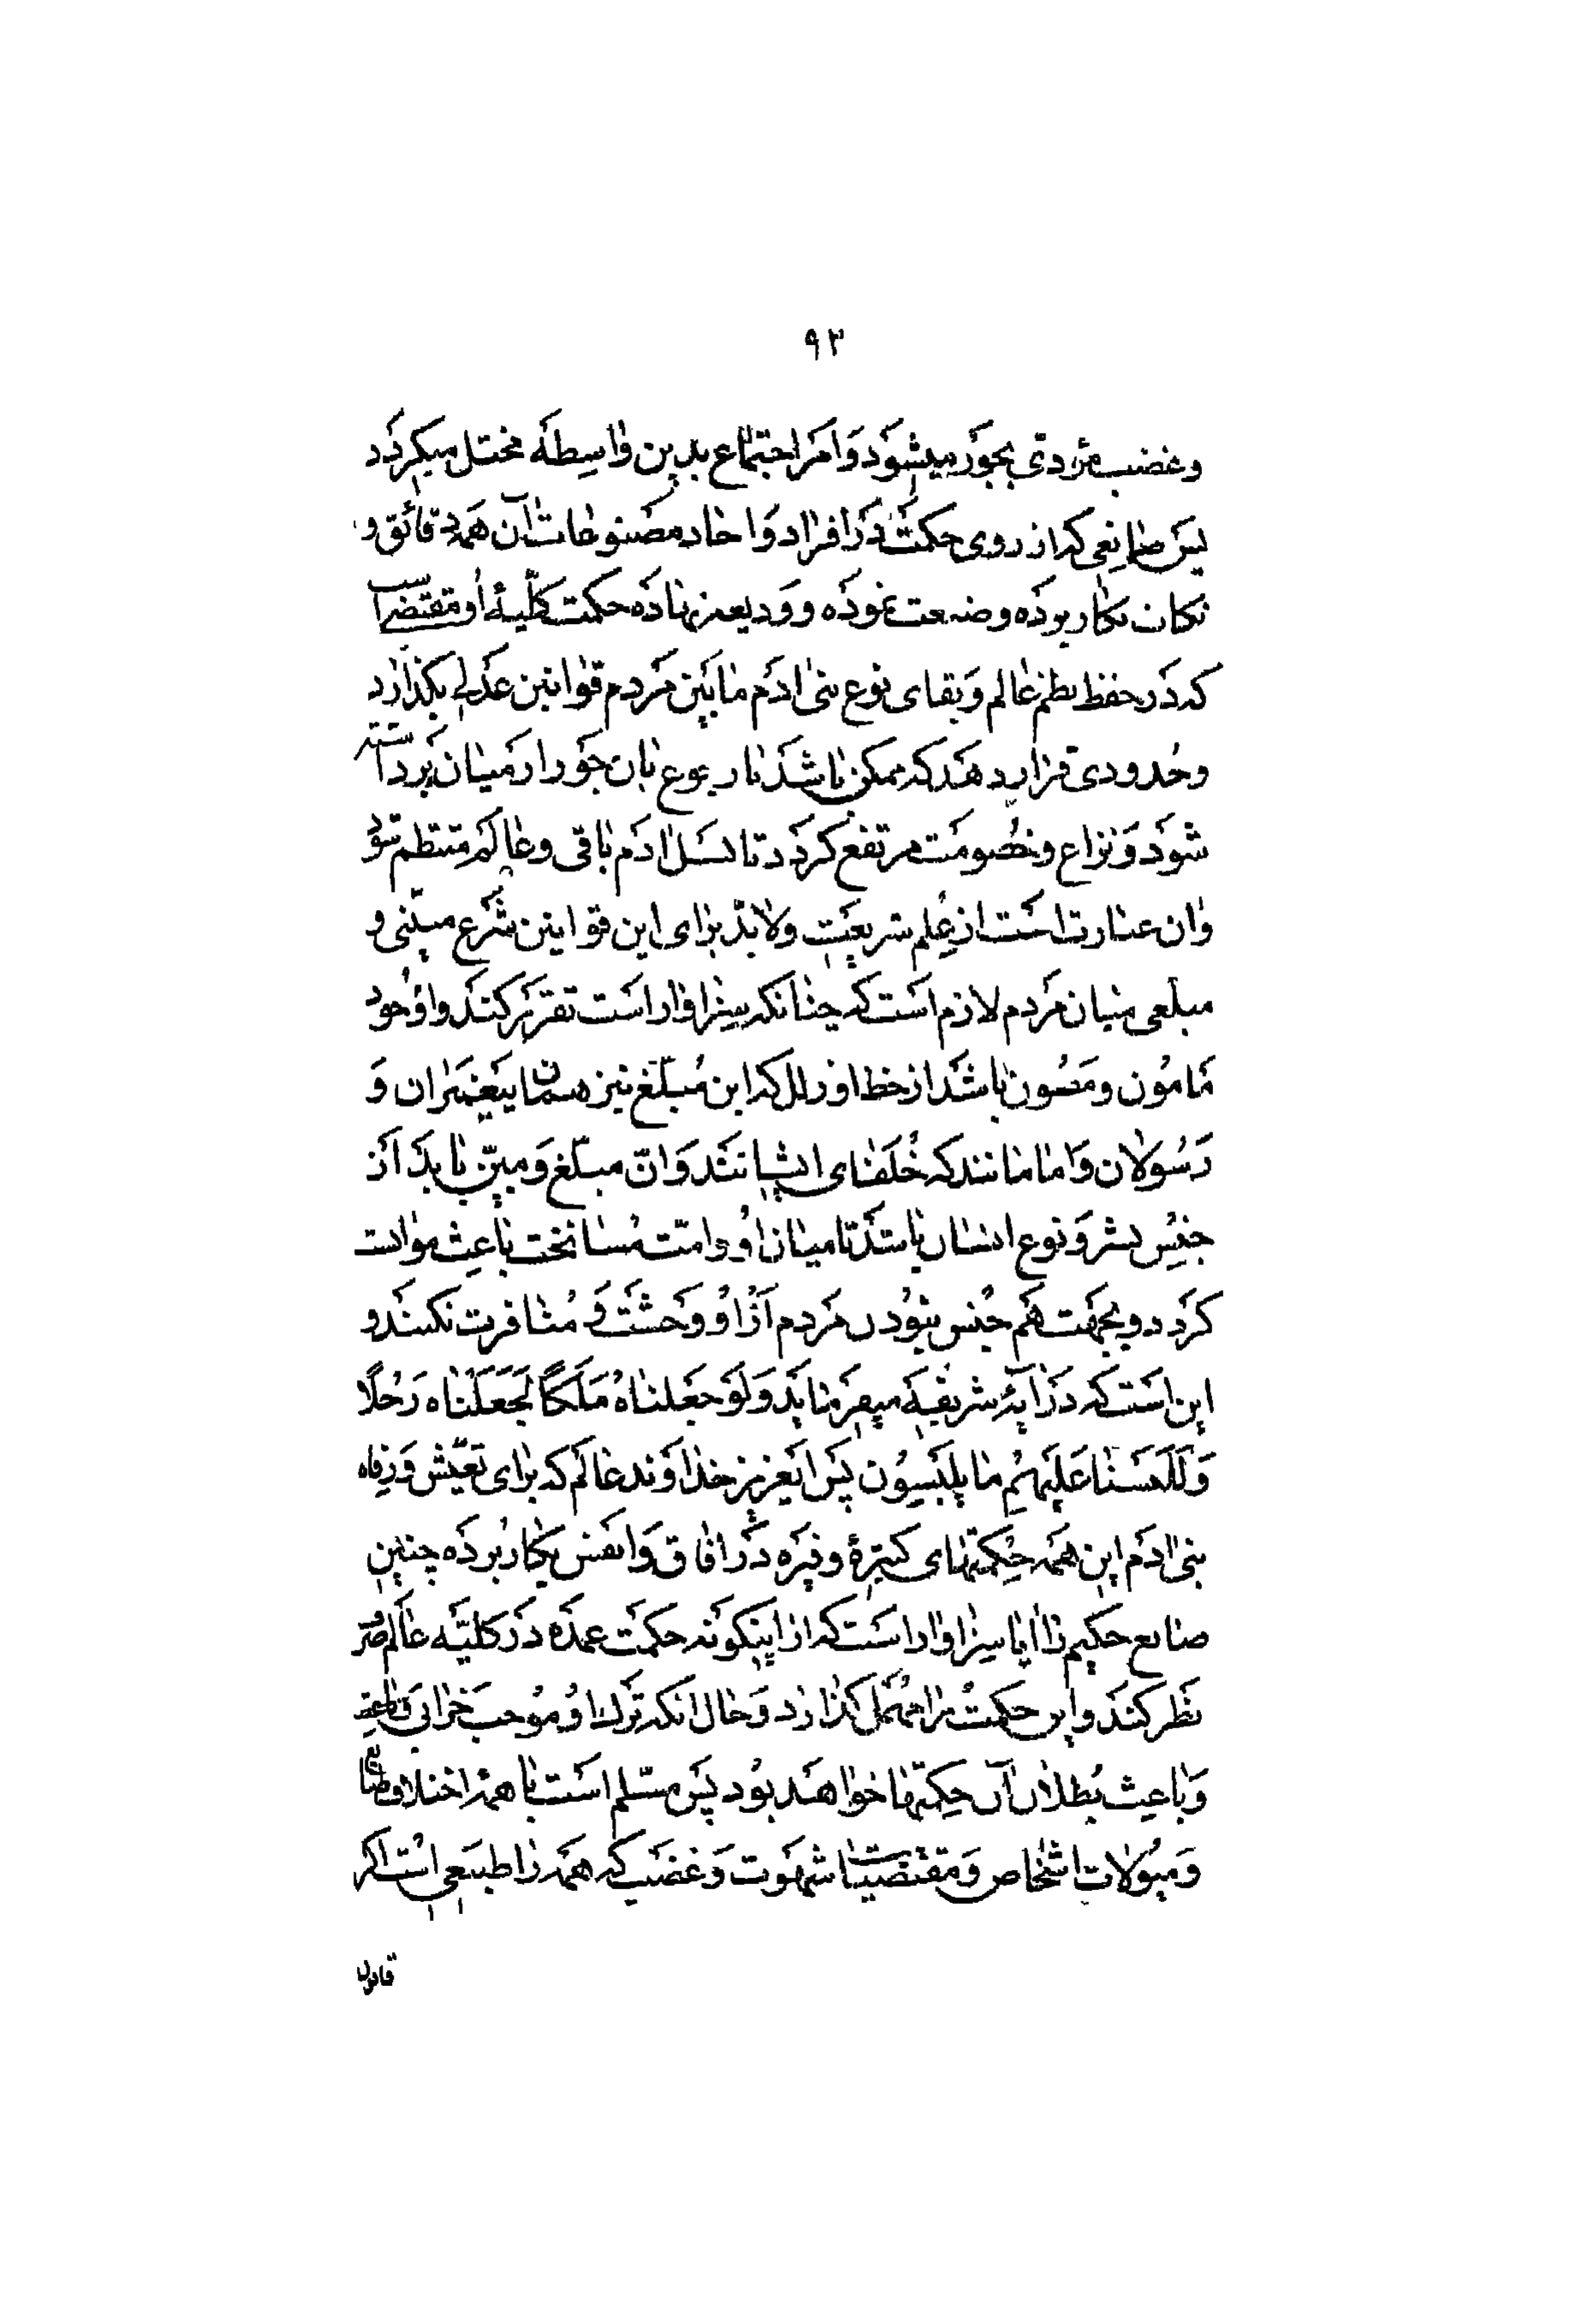 ۹۲
وغضب مؤدّی بجور میشود و امر اجتماع بدین واسطه مختل میکردد
پس صانعی که از روی حکمت در افراد و احاد مصنوعات آن همه دقائق و
نکات بکار برده وصنعت نموده و ودیعه نهاده حکمت کلّیهٔ او مقتضی است
که در حفظ نظم عالم و بقای نوع بنی ادم مابین مردم قوانین عدلی بکذارد
وحدودی قرار دهد که ممکن باشد با رجوع بان جور از میان برداشته
شود و نزاع وخصومت مرتفع کردد تا نسل ادم باقی وعالم منتظم شود
وان عبارت است از علم شریعت ولابدّ برای این قوانین شرع مبیّنی و
مبلّغی میان مردم لازم است که چنانکه سزاوار است تقریر کند و او خود
مامون ومصون باشد از خطا و زلل که این مُبلّغ نیز همان پیغمبران و
رسولان و امامانند که خُلفای ایشانند و انّ مبلّغ و مبیّن باید از
جنس بشر و نوع انسان باشد تا میان او و امّت مُسانخت باعث موانست
کردد و بجهت هم جنس نبودن مردم از او وحشت و مُنافرت نکنند و
این است که در ایهٔ شریفه میفرماید وَلَوْ جَعَلناهُ مَلَکًا لَجَعَلْناه رَجُلًا
وَلَلَبَسْنا عَلَیْهِم ما یلبسون پس ایعزیز خداوند عالم که برای تعیّش و رفاه
بنی ادم این همه حکمتهای کثیرهٔ وفیره در افاق و انفس بکار برده چنین
صانع حکیم را ایا سزاوار است که از اینکونه حکمت عمده در کلیّه عالم صرف
نظر کند و این حکمت را مهمل کذارد و حال انکه ترک او موجب خرابی
و باعث بُطلان آن حکمتها خواهد بود پس مسلّم است با همهٔ اختلاف طبایع
و میولات اشخاص و مقتضیات شهوت و غضب که همه را طبیعی است اکر
قانون